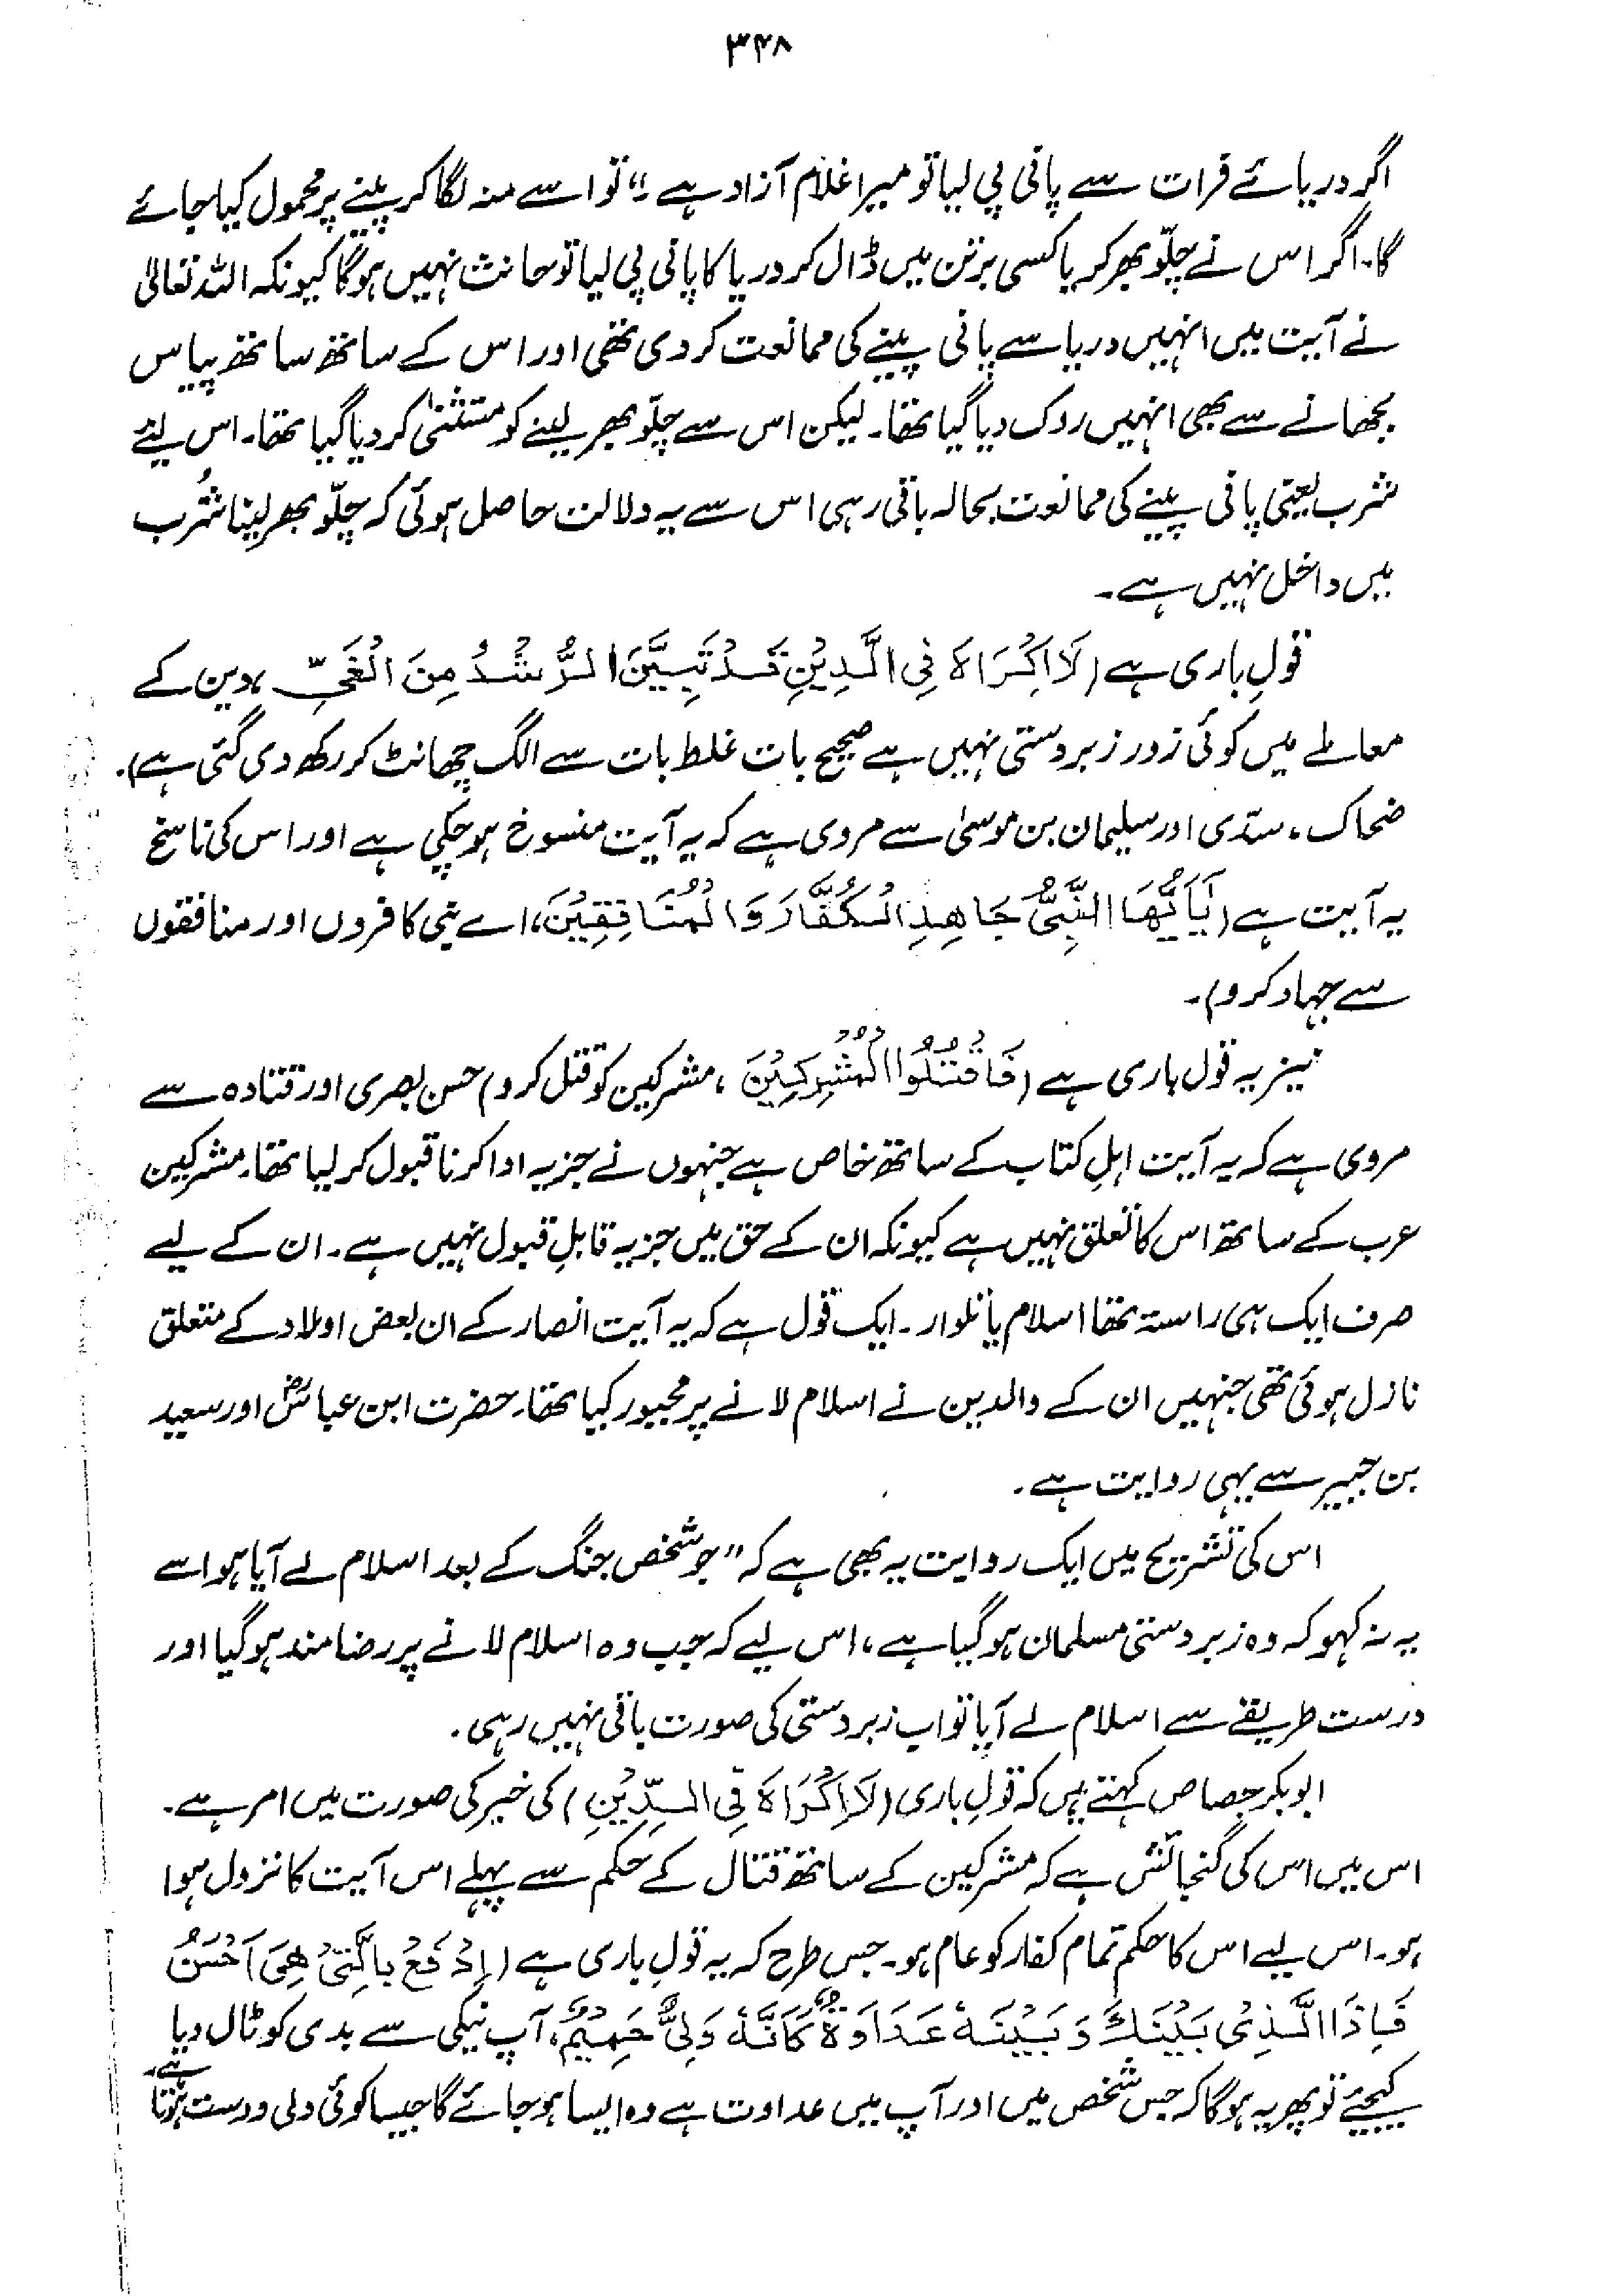 ۳۴۸
اگر دریائے فرات سے پانی پی لیا تو میرا غلام آزاد ہے ۔“ تو اسے منہ لگا کر پینے پر محمول کیا جائے
گا۔ اگر اس نے چلّو بھر کر یا کسی برتن میں ڈال کر دریا کا پانی پی لیا تو حانث نہیں ہوگا کیونکہ اللہ تعالیٰ
نے آیت میں انہیں دریا سے پانی پینے کی ممانعت کر دی تھی اور اس کے ساتھ ساتھ پیاس
بجھانے سے بھی انہیں روک دیا گیا تھا۔ لیکن اس سے چلّو بھر لینے کو مستثنیٰ کر دیا گیا تھا۔ اس لیے
شرب یعنی پانی پینے کی ممانعت بحالہ باقی رہی اس سے یہ دلالت حاصل ہوئی کہ چلّو بھر لینا شُرب
میں داخل نہیں ہے۔
قولِ باری ہے (لَا اِكْرَاهَ فِی الدِّيْنِ قَدْ تَبَيَّنَ الرُّشْدُ مِنَ الْغَيِّ، دین کے
معاملے میں کوئی زور زبردستی نہیں ہے صحیح بات غلط بات سے الگ چھانٹ کر رکھ دی گئی ہے)۔
ضحاک، سدّی اور سلیمان بن موسیٰ سے مروی ہے کہ یہ آیت منسوخ ہو چکی ہے اور اس کی ناسخ
یہ آیت ہے (يَاَيُّهَا النَّبِيُّ جَاهِدِ الْكُفَّارَ وَالْمُنَافِقِيْنَ، اے نبی کافروں اور منافقوں
سے جہاد کرو)۔
نیز یہ قول باری ہے (فَاقْتُلُوا الْمُشْرِكِيْنَ، مشرکین کو قتل کرو) حسن بصری اور قتادہ سے
مروی ہے کہ یہ آیت اہلِ کتاب کے ساتھ خاص ہے جنہوں نے جزیہ ادا کرنا قبول کر لیا تھا۔ مشرکین
عرب کے ساتھ اس کا تعلق نہیں ہے کیونکہ ان کے حق میں جزیہ قابلِ قبول نہیں ہے۔ ان کے لیے
صرف ایک ہی راستہ تھا اسلام یا تلوار۔ ایک قول ہے کہ یہ آیت انصار کے ان بعض اولاد کے متعلق
نازل ہوئی تھی جنہیں ان کے والدین نے اسلام لانے پر مجبور کیا تھا۔ حضرت ابن عباسؓ اور سعید
بن جبیر سے یہی روایت ہے۔
اس کی تشریح میں ایک روایت یہ بھی ہے کہ ”جو شخص جنگ کے بعد اسلام لے آیا ہو اسے
یہ نہ کہو کہ وہ زبردستی مسلمان ہو گیا ہے، اس لیے کہ جب وہ اسلام لانے پر رضامند ہو گیا اور
درست طریقے سے اسلام لے آیا تو اب زبردستی کی صورت باقی نہیں رہی۔
ابوبکر جصاص کہتے ہیں کہ قولِ باری (لَا اِكْرَاهَ فِی الدِّيْنِ) کی خبر کی صورت میں امر ہے۔
اس میں اس کی گنجائش ہے کہ مشرکین کے ساتھ قتال کے حکم سے پہلے اس آیت کا نزول ہوا
ہو۔ اس لیے اس کا حکم تمام کفار کو عام ہو۔ جس طرح کہ یہ قولِ باری ہے (اِدْفَعْ بِالَّتِیْ هِیَ اَحْسَنُ
فَاِذَا الَّذِیْ بَيْنَكَ وَبَيْنَهٗ عَدَاوَةٌ كَاَنَّهٗ وَلِیٌّ حَمِيْمٌ، آپ نیکی سے بدی کو ٹال دیا
کیجئے تو پھر یہ ہوگا کہ جس شخص میں اور آپ میں عداوت ہے وہ ایسا ہو جائے گا جیسا کوئی ولی دوست ہوتا ہے۔